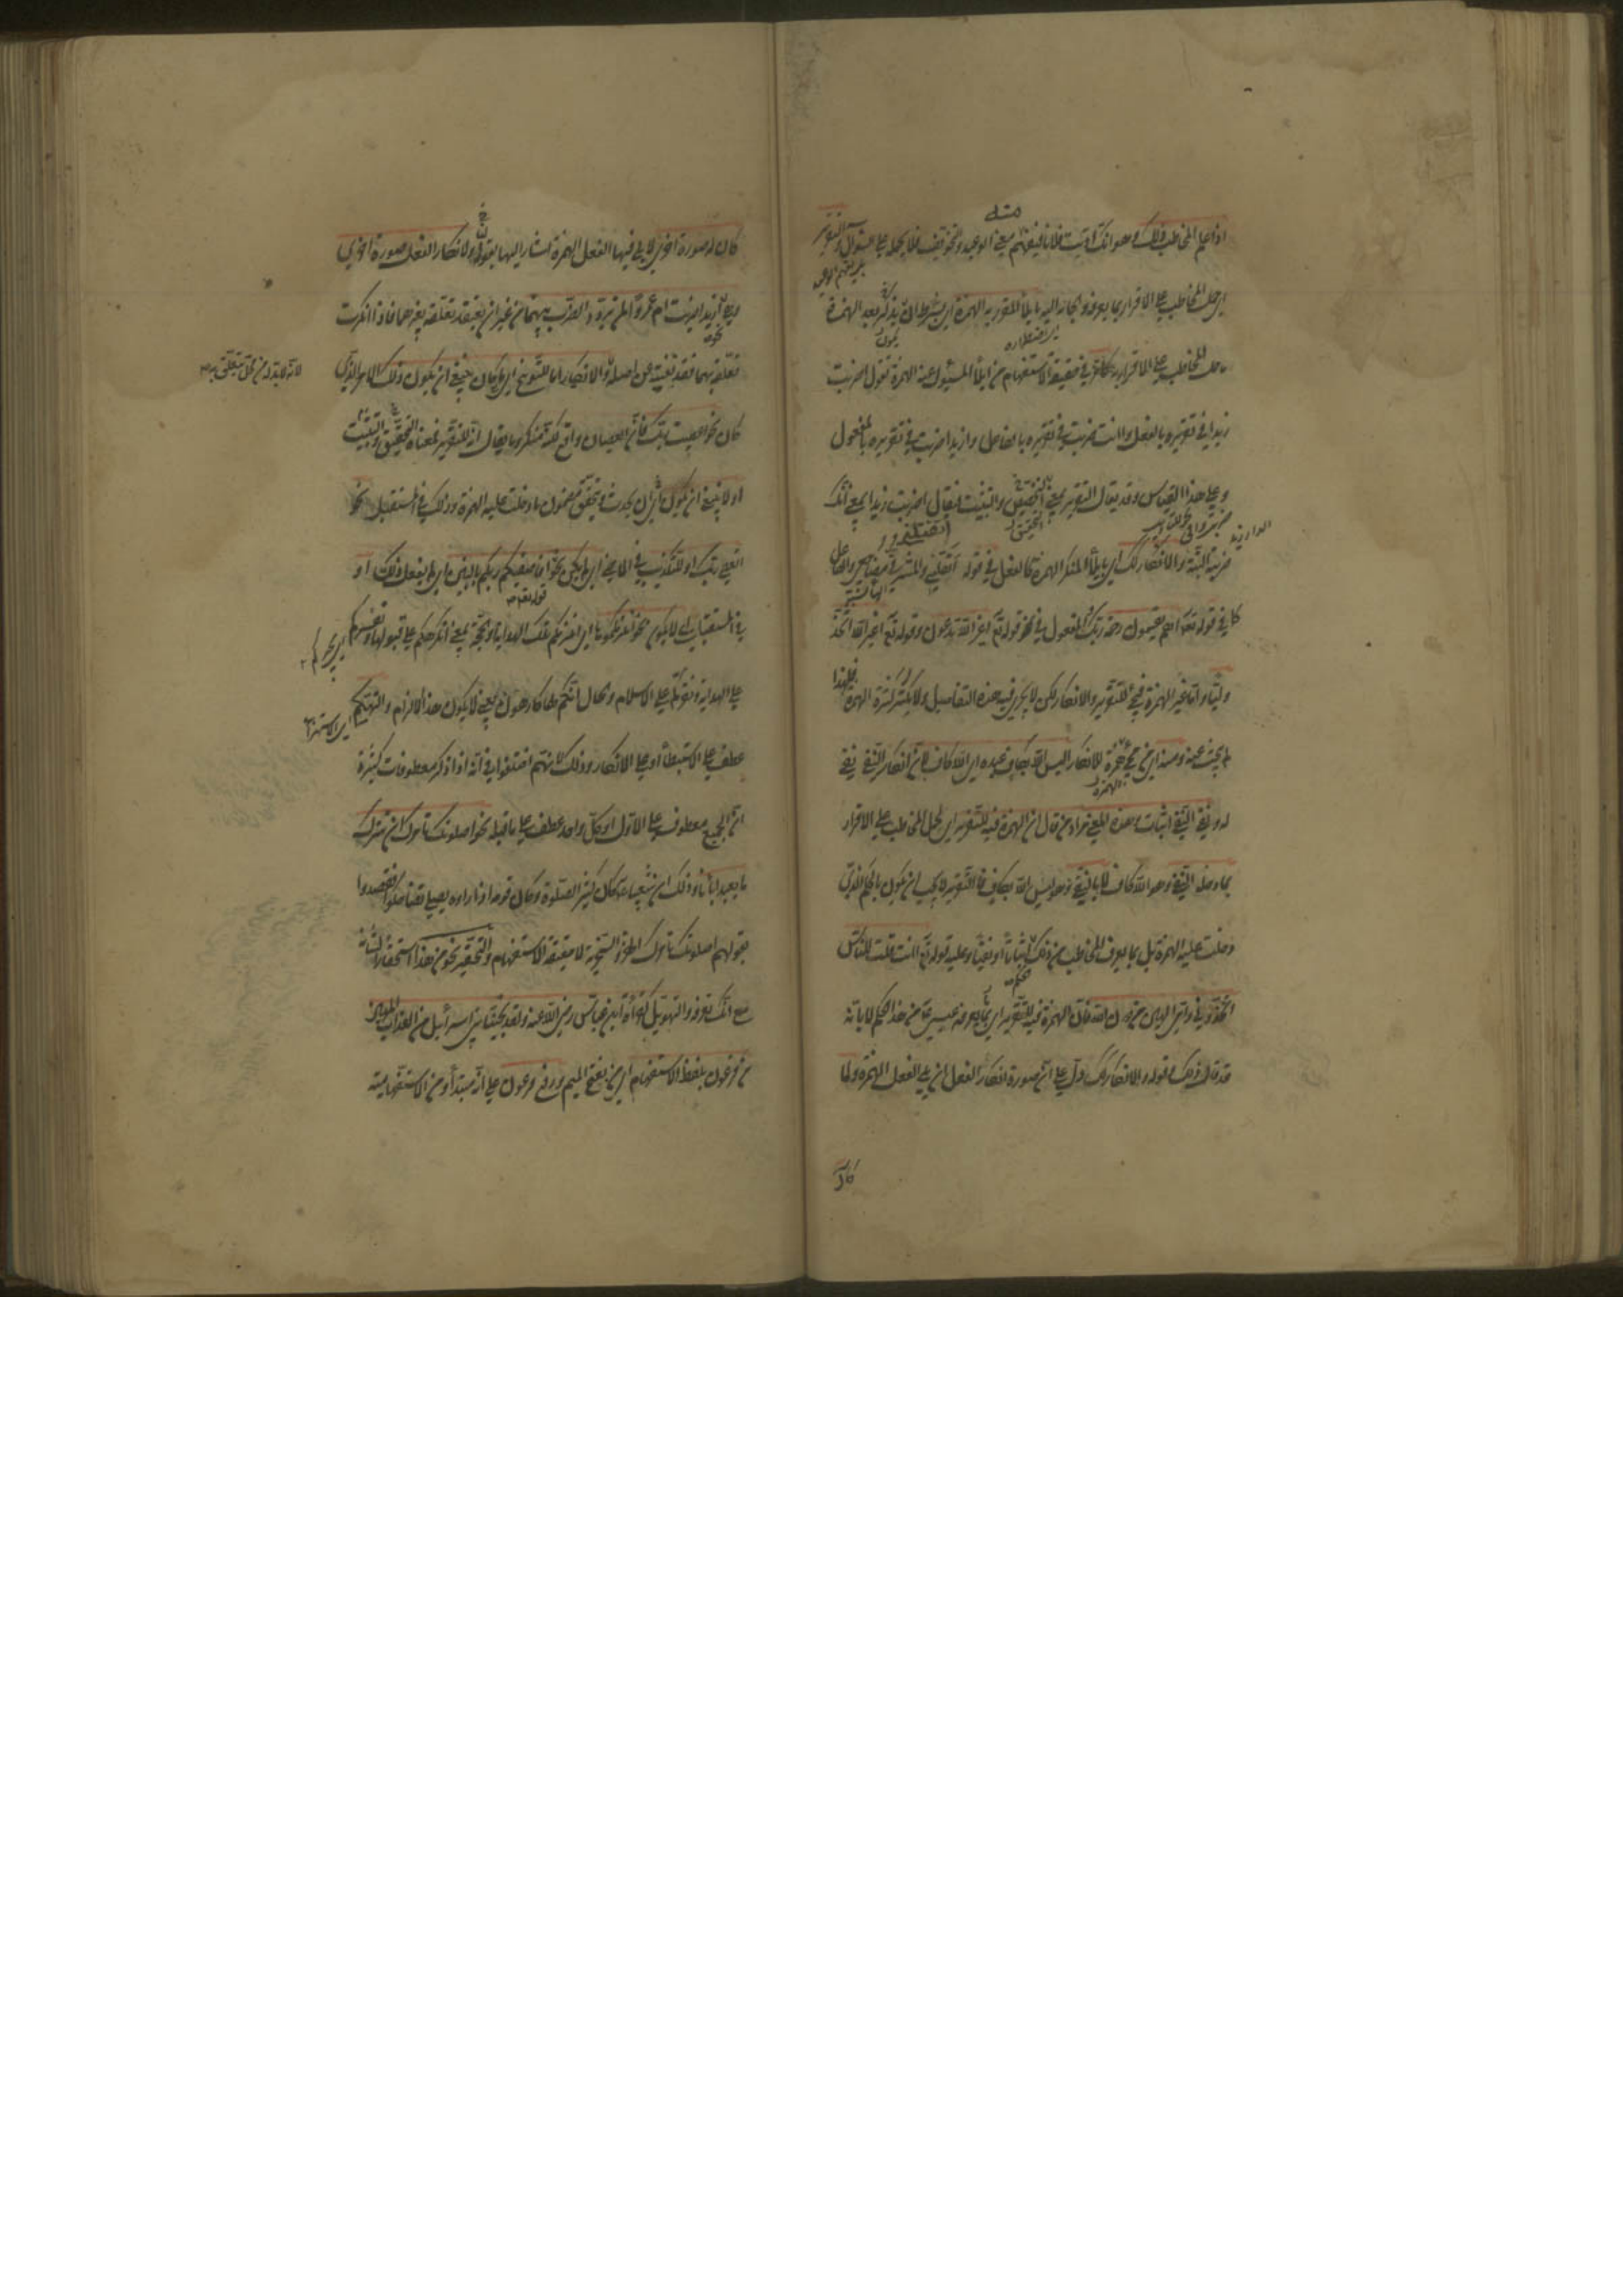 اذا علم المخاطب ذلك وهو انك ادبت فلانا فيفهم معنى الوعيد والتخويف فلا يحمله على السؤال والتقرير
اي حمل المخاطب على الاقرار بما يعرفه والجائه اليه بايلاء المقرر به الهمزة اي بشرط ان يذكر بعد الهمزة
ما حمل المخاطب على الاقرار به كما مر في حقيقة الاستفهام من ايلاء المسئول عنه الهمزة تقول اضربت
زيدا في تقريره بالفعل واانت ضربت في تقريره بالفاعل وازيدا ضربت في تقريره بالمفعول
وعلى هذا القياس وقد يقال التقرير بمعنى التحقيق والتثبيت فيقال اضربت زيدا بمعنى انك
ضربته البتة والانكار كذلك اي بايلاء المنكر الهمزة كالفعل في قوله ايقتلني والمشرفي مضاجعي والفاعل
كما في قوله تعالى اهم يقسمون رحمة ربك والمفعول في نحو قوله تع اغير الله تدعون وقوله تع اغير الله اتخذ
وليا واما غير الهمزة فيجيء للتقرير والانكار لكن لا يجري فيه هذه التفاصيل ولا يكثر كثرة الهمزة فلهذا
لم يبحث عنه ومنه اي من مجيء الهمزة للانكار اليس الله بكاف عبده اي الله كاف لان انكار النفي نفي
له ونفي النفي اثبات وهذا المعنى مراد من قال ان الهمزة فيه للتقرير اي لحمل المخاطب على الاقرار
بما دخله النفي وهو الله كاف لا بالنفي وهو ليس الله بكاف فالتقرير لا يجب ان يكون بالحكم الذي
دخلت عليه الهمزة بل بما يعرف المخاطب من ذلك اثباتا او نفيا وعليه قوله تع اانت قلت للناس
اتخذوني وامي الهين من دون الله فان الهمزة فيه للتقرير اي بما يعرفه عيسى ع من هذا الحكم لا بانه
قد قال ذلك وقوله والانكار كذلك دل على ان صورة انكار الفعل ان يلي الفعل الهمزة ولما
كان
كان له صورة اخرى لا يلي فيها الفعل الهمزة اشار اليها بقوله ولانكار الفعل صورة اخرى
وهي ازيدا ضربت ام عمروا لمن يردد الضرب بينهما من غير ان يعتقد تعلقه بغيرهما فاذا انكرت
تعلقه بهما فقد نفيته عن اصله والانكار اما للتوبيخ اي ما كان ينبغي ان يكون ذلك الامر الذي
لانه لا بد له من محل يتعلق به
كان نحو اعصيت ربك فان العصيان واقع لكنه منكر وما يقال انه للتقرير فمعناه التحقيق والتثبيت
او لا ينبغي ان يكون اي ان يحدث ويتحقق مضمون ما دخلت عليه الهمزة وذلك في المستقبل نحو
اتعصي ربك او للتكذيب في الماضي اي لم يكن نحو افاصفيكم ربكم بالبنين اي لم يفعل ذلك او
في المستقبل اي لا يكون نحو انلزمكموها اي انلزمكم تلك الهداية او الحجة بمعنى انكرهكم على قبولها ونقسركم
على الهداية ونلزمكم على الاسلام والحال انكم لها كارهون يعني لا يكون هذا الالزام والتهكم
عطف على الاستبطاء او على الانكار وذلك لانهم اختلفوا في انه اذا ذكر معطوفات كثيرة
ان الجميع معطوف على الاول او كل واحد عطف على ما قبله نحو اصلوتك تأمرك ان نترك
ما يعبد اباؤنا وذلك ان شعيبا ع كان كثير الصلوة وكان قومه اذا راوه يصلي تضاحكوا فقصدوا
بقولهم اصلوتك تأمرك الهزؤ والسخرية لا حقيقة الاستفهام والتحقير نحو من هذا استحقارا لشانه
مع انك تعرفه والتهويل كقراءة ابن عباس رضي الله عنه ولقد نجينا بني اسرائيل من العذاب المهين
من فرعون بلفظ الاستفهام اي من بفتح الميم ورفع فرعون على انه مبتدأ ومن الاستفهامية